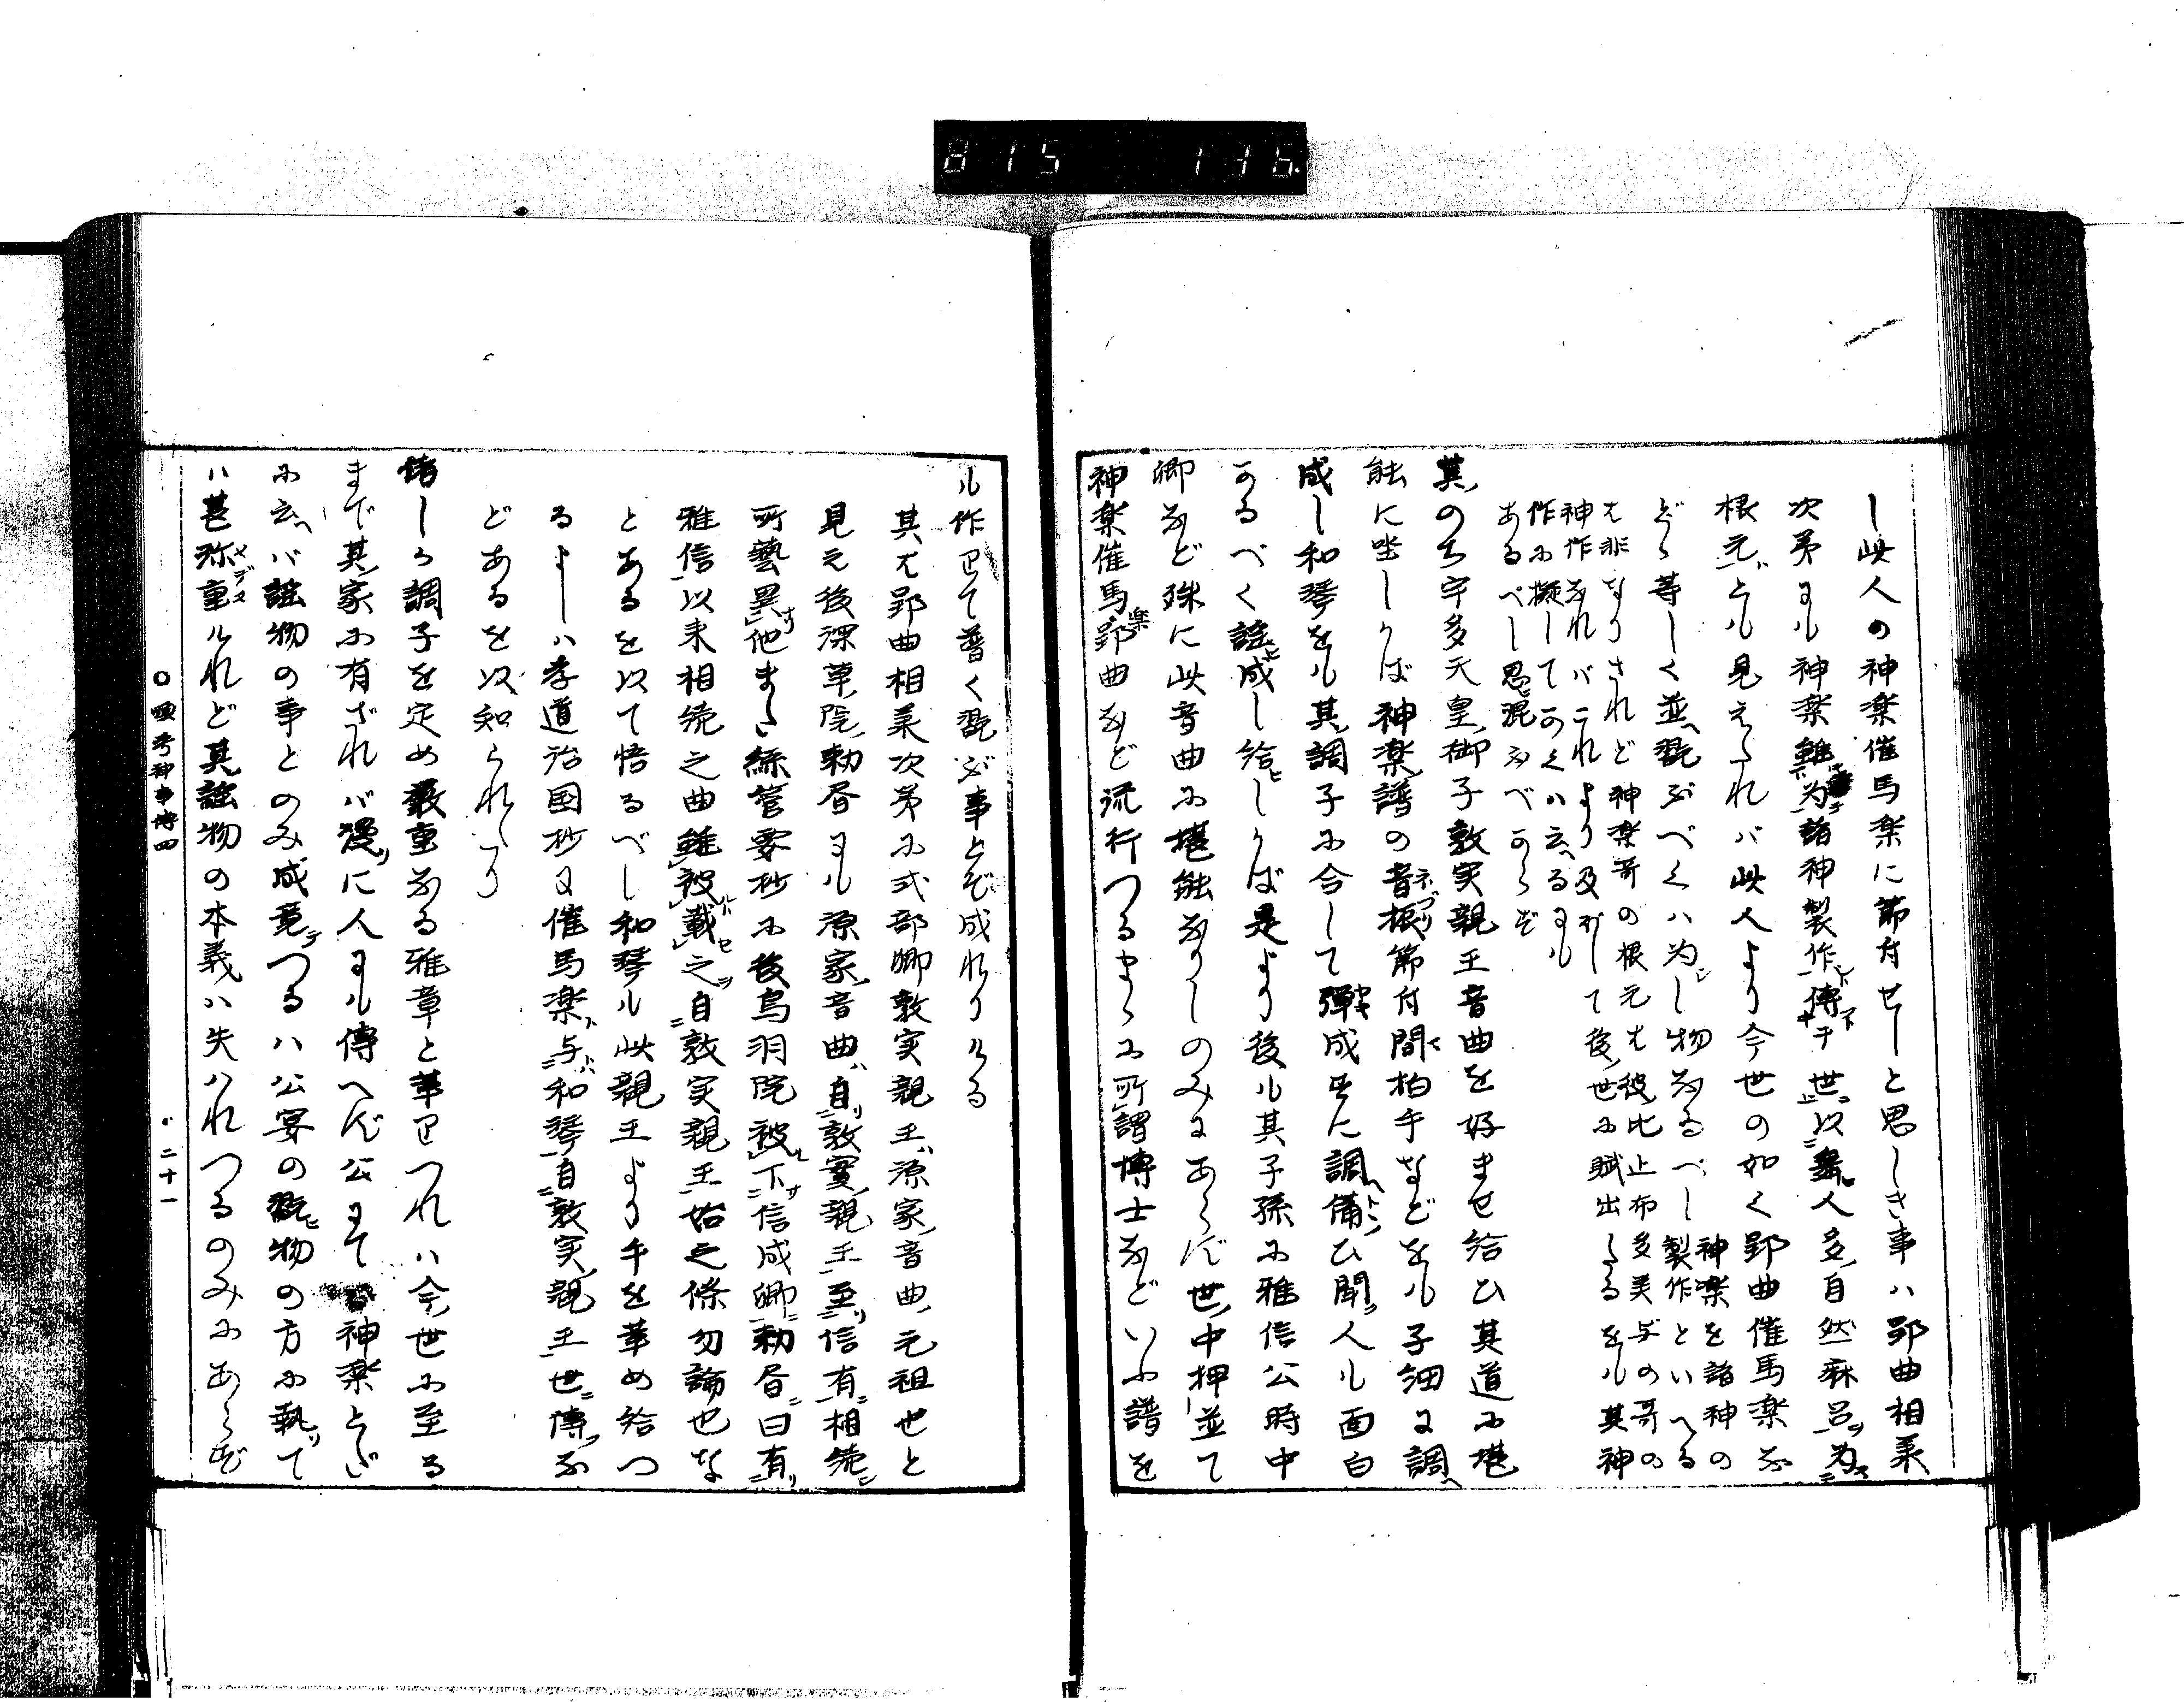 815 116
し此人の神楽催馬楽に節付せしと思しき事ハ郢曲相承
次第にも神楽雖為諸神製作傳乎世以舞人多自然麻呂為
根元とも見えたれバ此人より今世の如く郢曲催馬楽な
どゝ等しく並翫ぶべくハ為し物なるべし
神楽を諸神の
製作といへる
は非なりされど神楽哥の根元は彼比止布多美与の哥の
神作なれバこれより及ぼして後世に賦出たるをも其神
作に擬してかくハ云るにも
あるべし思混ふべからず
其のち宇多天皇御子敦実親王音曲を好ませ給ひ其道に堪
能に坐しけば神楽譜の音振節付間拍手などをも子細に調
成し和琴をも其調子に合して弾成互に調備ひ聞人も面白
かるべく謡成し給しけば是より後も其子孫に雅信公時中
卿など殊に此音曲に堪能なりしのみにあらず世中押並て
神楽催馬楽郢曲など流行つるまゝに所謂博士などいふ譜を
も作りて普く翫ぶ事とぞ成れりける
其は郢曲相承次第に式部卿敦実親王源家音曲元祖也と
見え後深草院勅書にも源家音曲自敦實親王至信有相続
所藝異他また絲管要抄に後鳥羽院被下信成卿勅書曰有
雅信以来相続之曲雖被載之自敦実親王始之條勿論也な
とあるを以て悟るべし和琴も此親王より手を革め給つ
るよしハ孝道治国抄に催馬楽与和琴自敦実親王世傳な
どあるを以知られたり
偖しか調子を定め厳重なる雅章と革りつれハ今世に至る
まで其家に有ざれバ漫に人にも傳へず公にて神楽とだ
に云バ謡物の事とのみ成竟つるハ公宴の翫物の方に執て
ハ甚弥重けれど其謡物の本義ハ失ハれつるのみにあらず
考神事 四
二十一